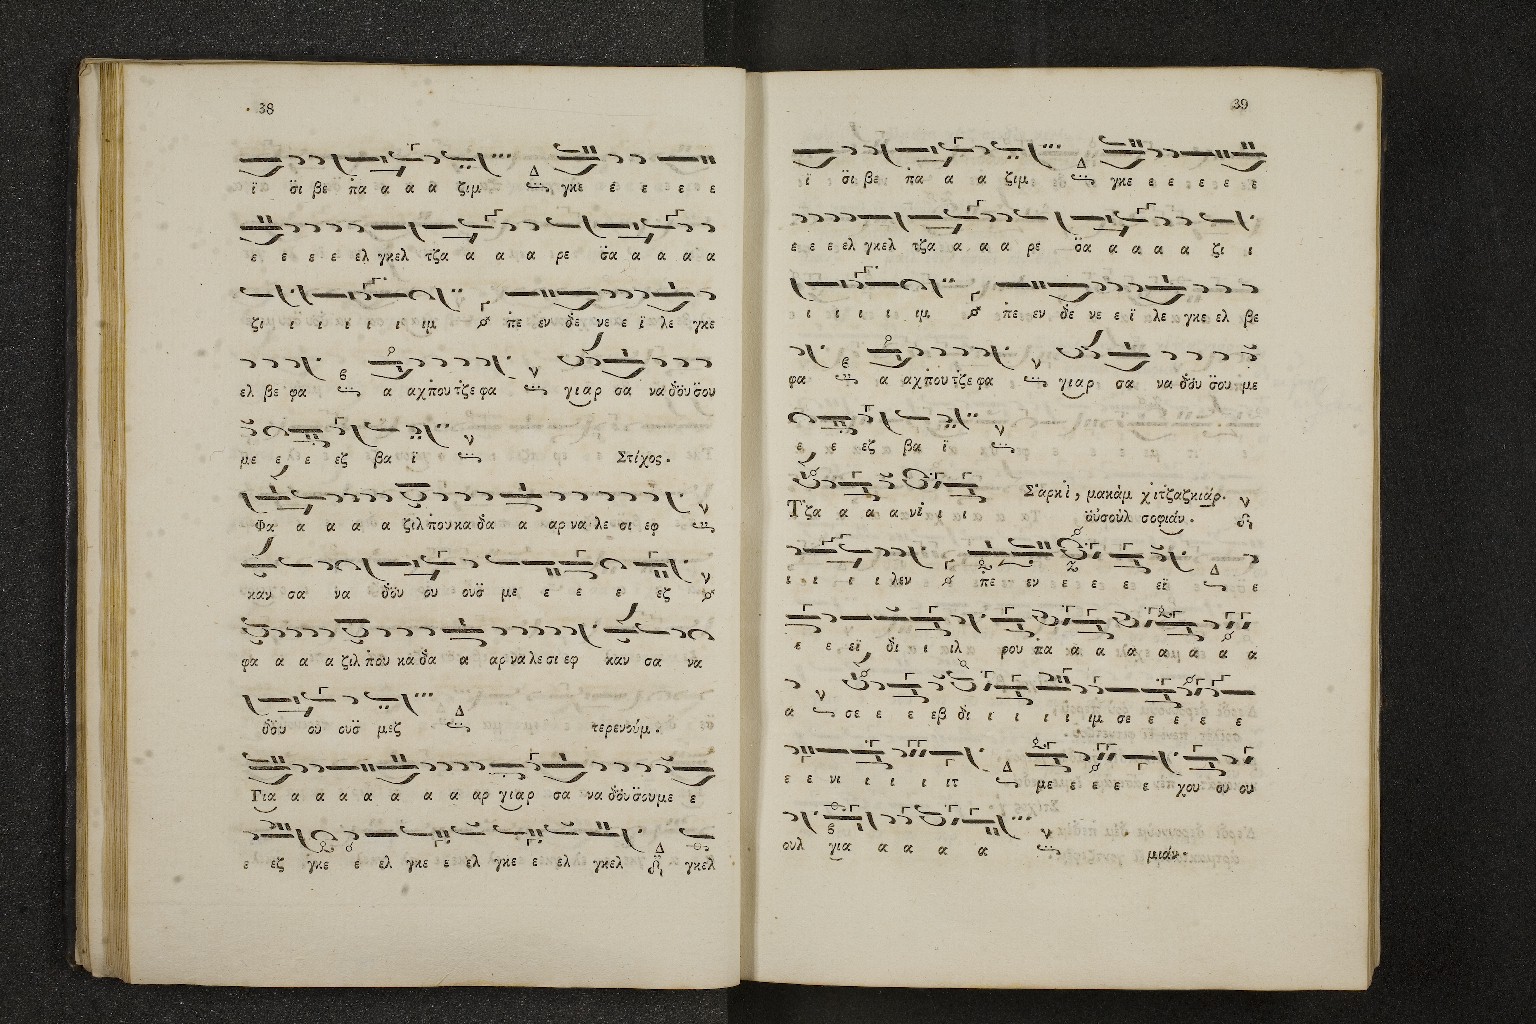 38
ϊ σ̈ι βε π̇α α α α ζιμ γκε ε ε ε ε
ε ε ε ε ελ γκελ τζα α α α ρε σ̈α α α α α
ζι ι ι ι ι ι ιμ π̇ε εν δ̇ε νε ε ϊ λε γκε
ελ βε φα α αχπ̇ουτζ̇ε φα γιαρ σα να δ̇οὺ σ̈ου
με ε ε εζ βα ϊ Στίχος.
Φα α α α α ζιλ π̇ου κα δ̇α α αρ να λε σι εφ
καν σα να δ̇οὺ ου ουσ̈ με ε ε ε εζ
φα α α α ζιλ π̇ου κα δ̇α α αρ να λε σι εφ καν σα να
δ̇οὺ ου ουσ̈ μεζ τερενούμ.
Για α α α α α α α αρ γιαρ σα να δ̇οὺ σ̈ου με ε
ε εζ γκε ε ελ γκε ε ελ γκε ε ελ γκελ γκελ
39
ϊ σ̈ι βε π̇α α α ζιμ γκε ε ε ε ε ε
ε ε ε ελ γκελ τζα α α α ρε σ̈α α α α α ζι ι
ι ι ι ι ιμ π̇ε εν δ̇ε νε ε ϊ λε γκε ελ βε
φα α αχπ̇ουτζ̇ε φα γιαρ σα να δ̇οὺ σ̈ου με
ε ε εζ βα ϊ
Σ̇αρκὶ, μακὰμ χιτζαζκιάρ.
Τζ̇α α α α νὶ ι ι οὐσοὺλ σοφιάν.
ι ι ι ι λεν π̇ε εν ε ε ε εϊ ε
ε ε εϊ δ̇ι ι ιλ ρου π̇α α α α α α α α
α σε ε ε εβ δ̇ι ι ι ι ι ιμ σε ε ε ε ε
ε ε νι ι ι ι ιτ με ε ε ε ε χου ου ου
ουλ για α α α α μιάν.